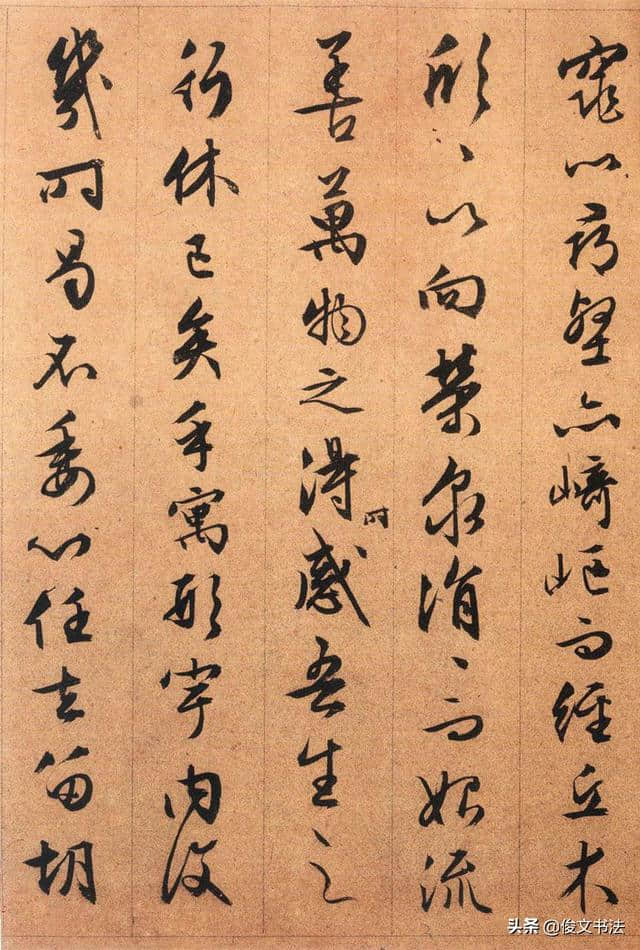 窕以尋壑亦崎岖而經丘木
欣〻以向榮泉涓〻而始流
善萬物之得時感吾生之
行休已矣乎寓形宇内復
幾時曷不委心任去留胡
头条 @俊文书法